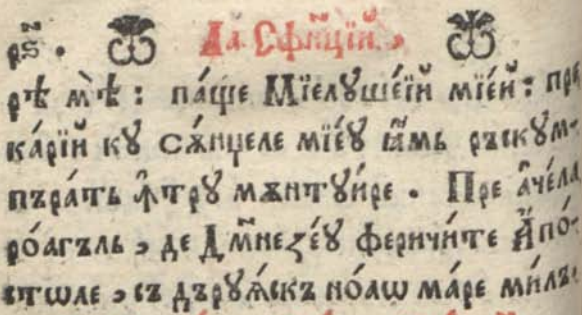 рѕ҃і. Ла Сфи҃нцїй,
рѣ мѣ̀: па́ще Мїелꙋше́їй мїе́й: пре
ка́рїй кꙋ сѫ́нџеле мїе́ꙋ ꙗ҆́мь ръскꙋм-
пъра́ть ꙟ҆́трꙋ мѫнтꙋи́ре. Пре а҆че́ла
ро́агъль, де Дм҃незе́ꙋ феричи́те А҆по́-
втѡле, съ дърꙋѧ́скъ но́аѡ ма́ре ми́лъ: